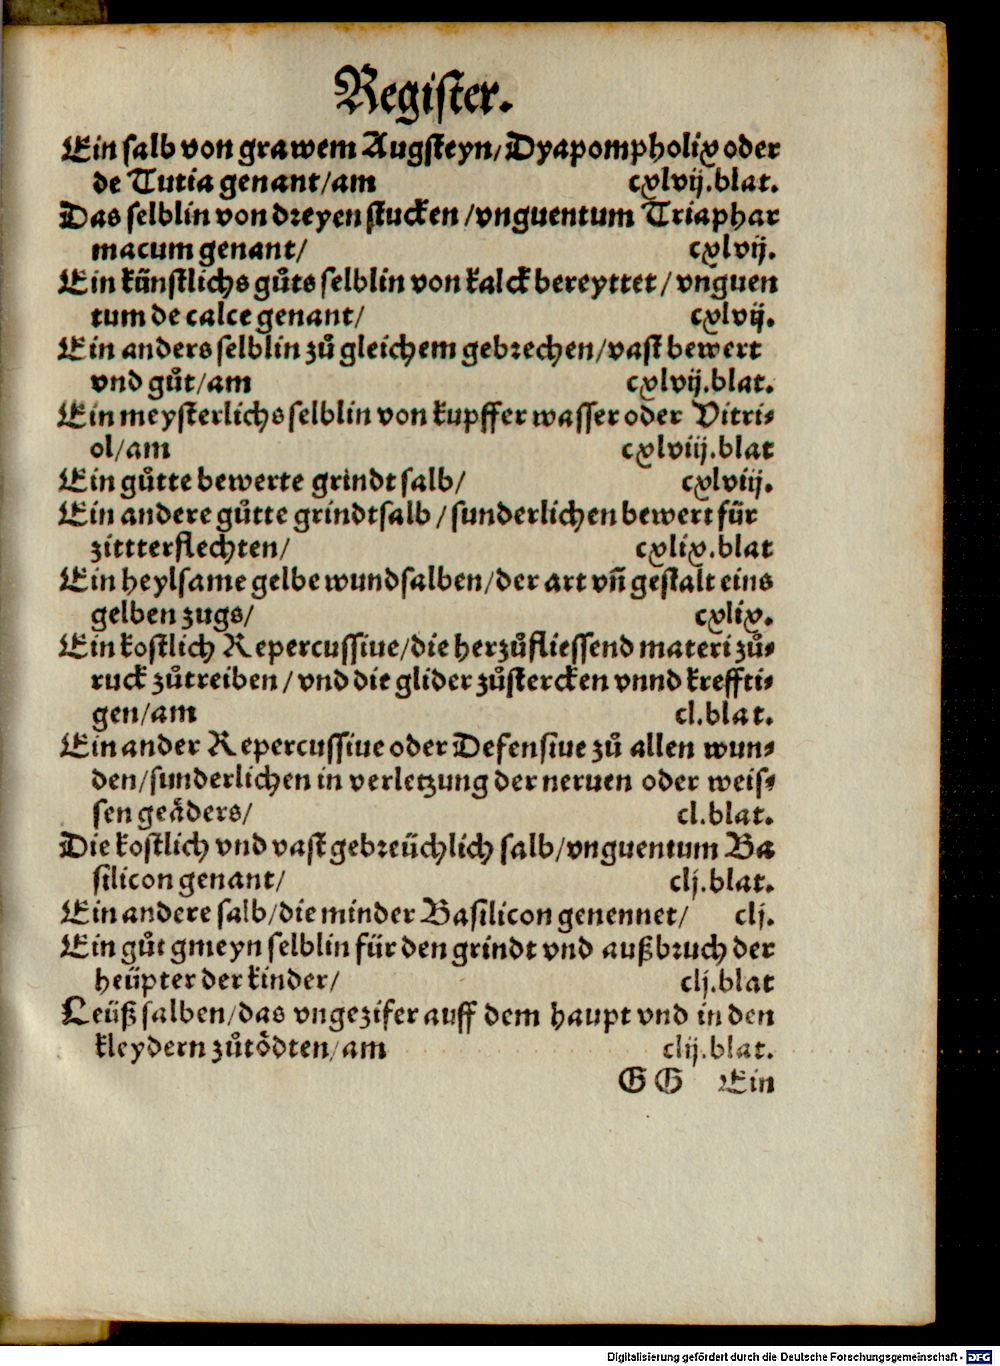 Register.
Ein salb von grawem Augsteyn/Dyapompholix oder
de Tutia genant/am cxlvij.blat.
Das selblin von dreyen stucken/vnguentum Triaphar
macum genant/ cxlvij.
Ein künstlichs gůts selblin von kalck bereyttet/vnguen
tum de calce genant/ cxlvij.
Ein anders selblin zů gleichem gebrechen/vast bewert
vnd gůt/am cxlvij.blat.
Ein meysterlichs selblin von kupffer wasser oder Vitri⸗
ol/am cxlviij.blat
Ein gůtte bewerte grindt salb/ cxlviij.
Ein andere gůtte grindtsalb/sunderlichen bewert für
zittterflechten/ cxlix.blat
Ein heylsame gelbe wundsalben/der art vñ gestalt eins
gelben zugs/ cxlix.
Ein kostlich Repercussiue/die herzůfliessend materi zů⸗
ruck zůtreiben/vnd die glider zůstercken vnnd kreffti⸗
gen/am cl.blat.
Ein ander Repercussiue oder Defensiue zů allen wun⸗
den/sunderlichen in verletzung der neruen oder weis⸗
sen geäders/ cl.blat.
Die kostlich vnd vast gebreüchlich salb/vnguentum Ba
silicon genant/ clj.blat.
Ein andere salb/die minder Basilicon genennet/ clj.
Ein gůt gmeyn selblin für den grindt vnd außbruch der
heüpter der kinder/ clj.blat
Leüß salben/das vngezifer auff dem haupt vnd in den
kleydern zůtödten/am clij.blat.
GG Ein
Digitalisierung gefördert durch die Deutsche Forschungsgemeinschaft - DFG